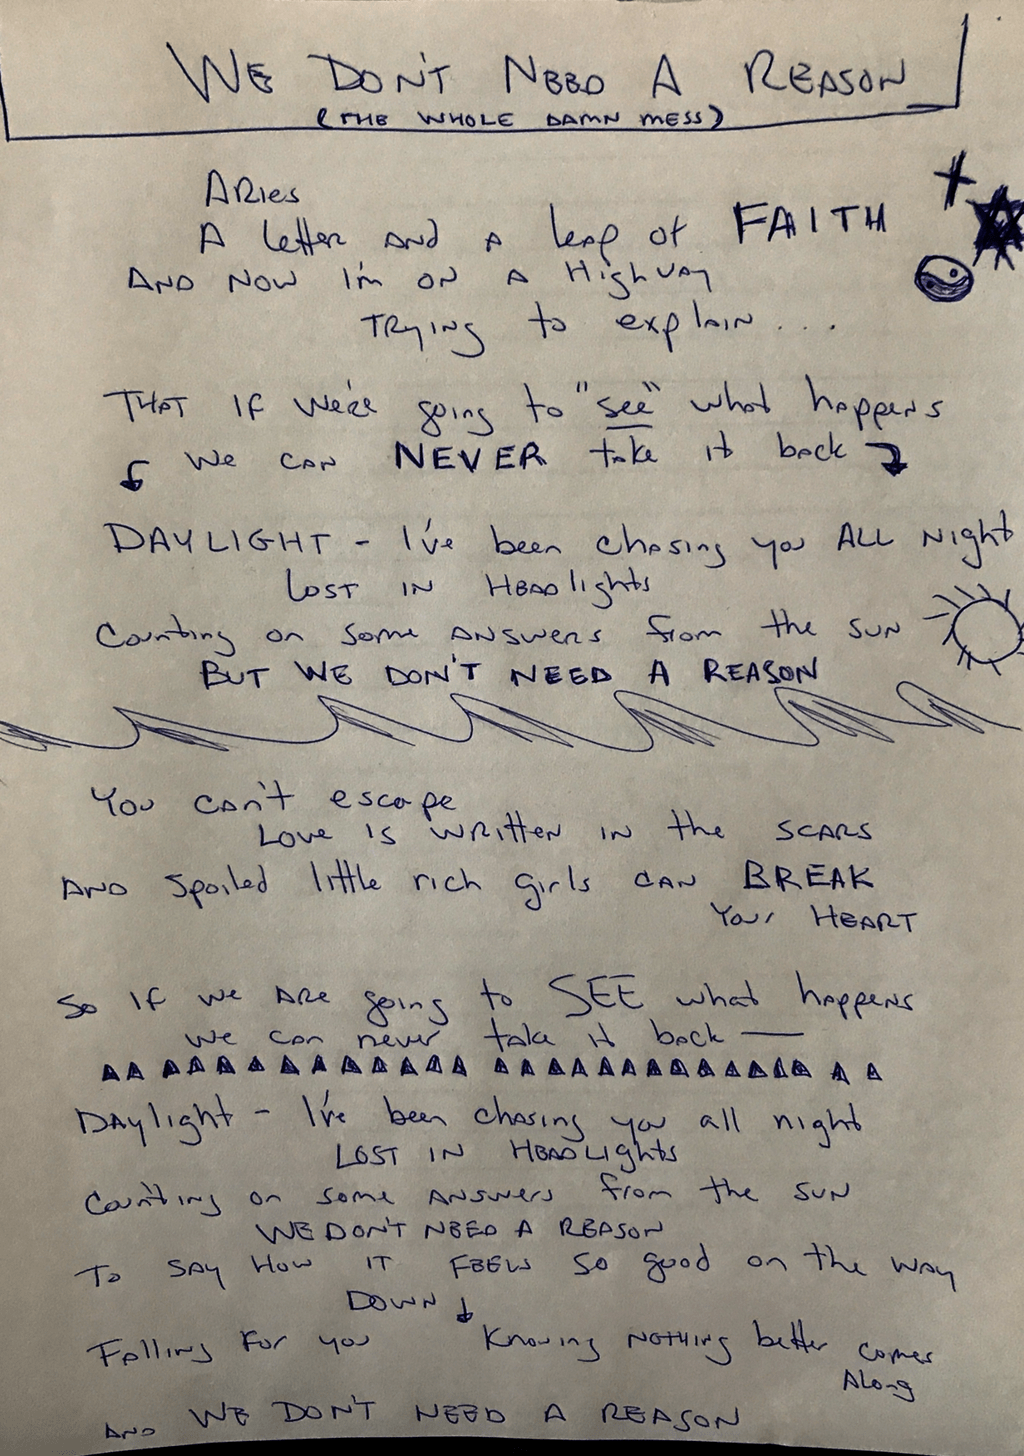 WE DON'T NEED A REASON
(THE WHOLE DAMN MESS)
ARies
A letter AND A leap of FAITH
AND NOW I'm ON A HighwAy
TRying to explAin....
THAT IF We're going to "see" what happens
We cAN NEVER take it back
DAYLIGHT - I've been chasing you ALL Night
LOST IN HEADlights
Counting on some ANSWERS from the SUN
BUT WE DON'T NEED A REASON
You can't escape
LOVE IS WRITTEN IN the SCARS
AND spoiled little rich girls CAN BREAK
Your HEART
So IF we ARe going to SEE what happens
we can never take it back —
DAylight - I've been chasing you all night
LOST IN HEADLights
Counting on some ANSWERS from the SUN
WE DON'T NEED A REASON
To SAY How IT FEELS so good on the WAY
DOWN
FAlling For you Knowing NOTHING better comes
Along
AND WE DON'T NEED A REASON